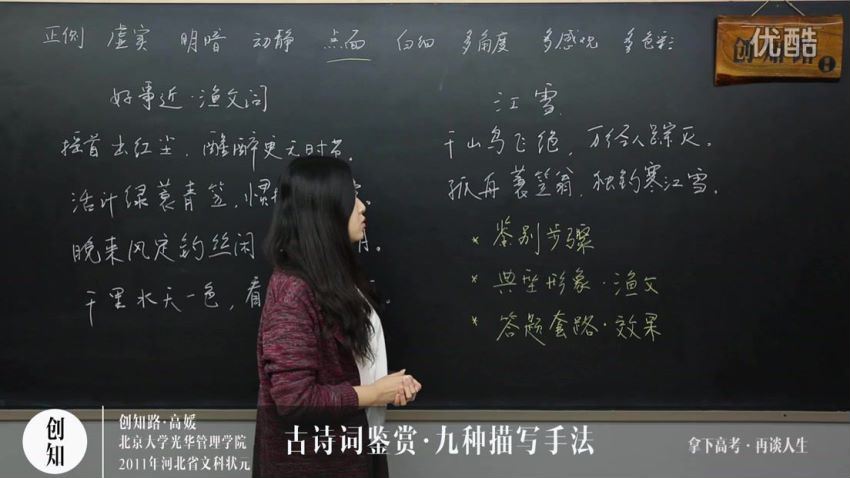 正侧 虚实 明暗 动静 点面 白细 多角度 多感观 多色彩
好事近·渔父词
摇首出红尘，醒醉更无时节。
活计绿蓑青笠，惯
晚来风定钓丝闲
千里水天一色，看
江雪
千山鸟飞绝，万径人踪灭。
孤舟蓑笠翁，独钓寒江雪。
* 鉴别步骤
* 典型形象·渔父
* 答题套路·效果
创知路
优酷
创知
创知路·高媛
北京大学光华管理学院
2011年河北省文科状元
古诗词鉴赏·九种描写手法
拿下高考·再谈人生